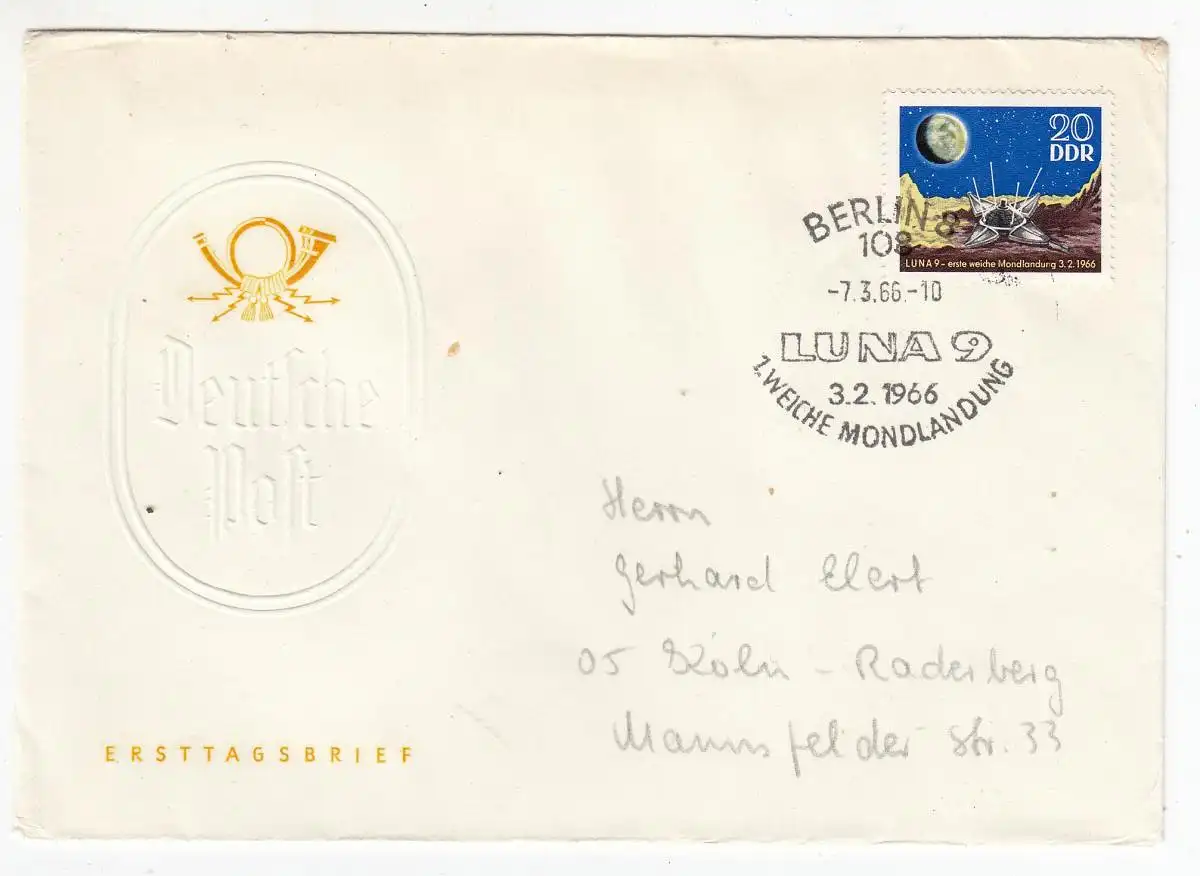 20
DDR
LUNA 9 – erste weiche Mondlandung 3.2.1966
BERLIN 8
108
-7.3.66.-10
LUNA 9
3.2.1966
1. WEICHE MONDLANDUNG
Deutsche
Post
ERSTTAGSBRIEF
Herrn
Gerhard Elert
05 Köln - Raderberg
Mannsfelder Str. 33